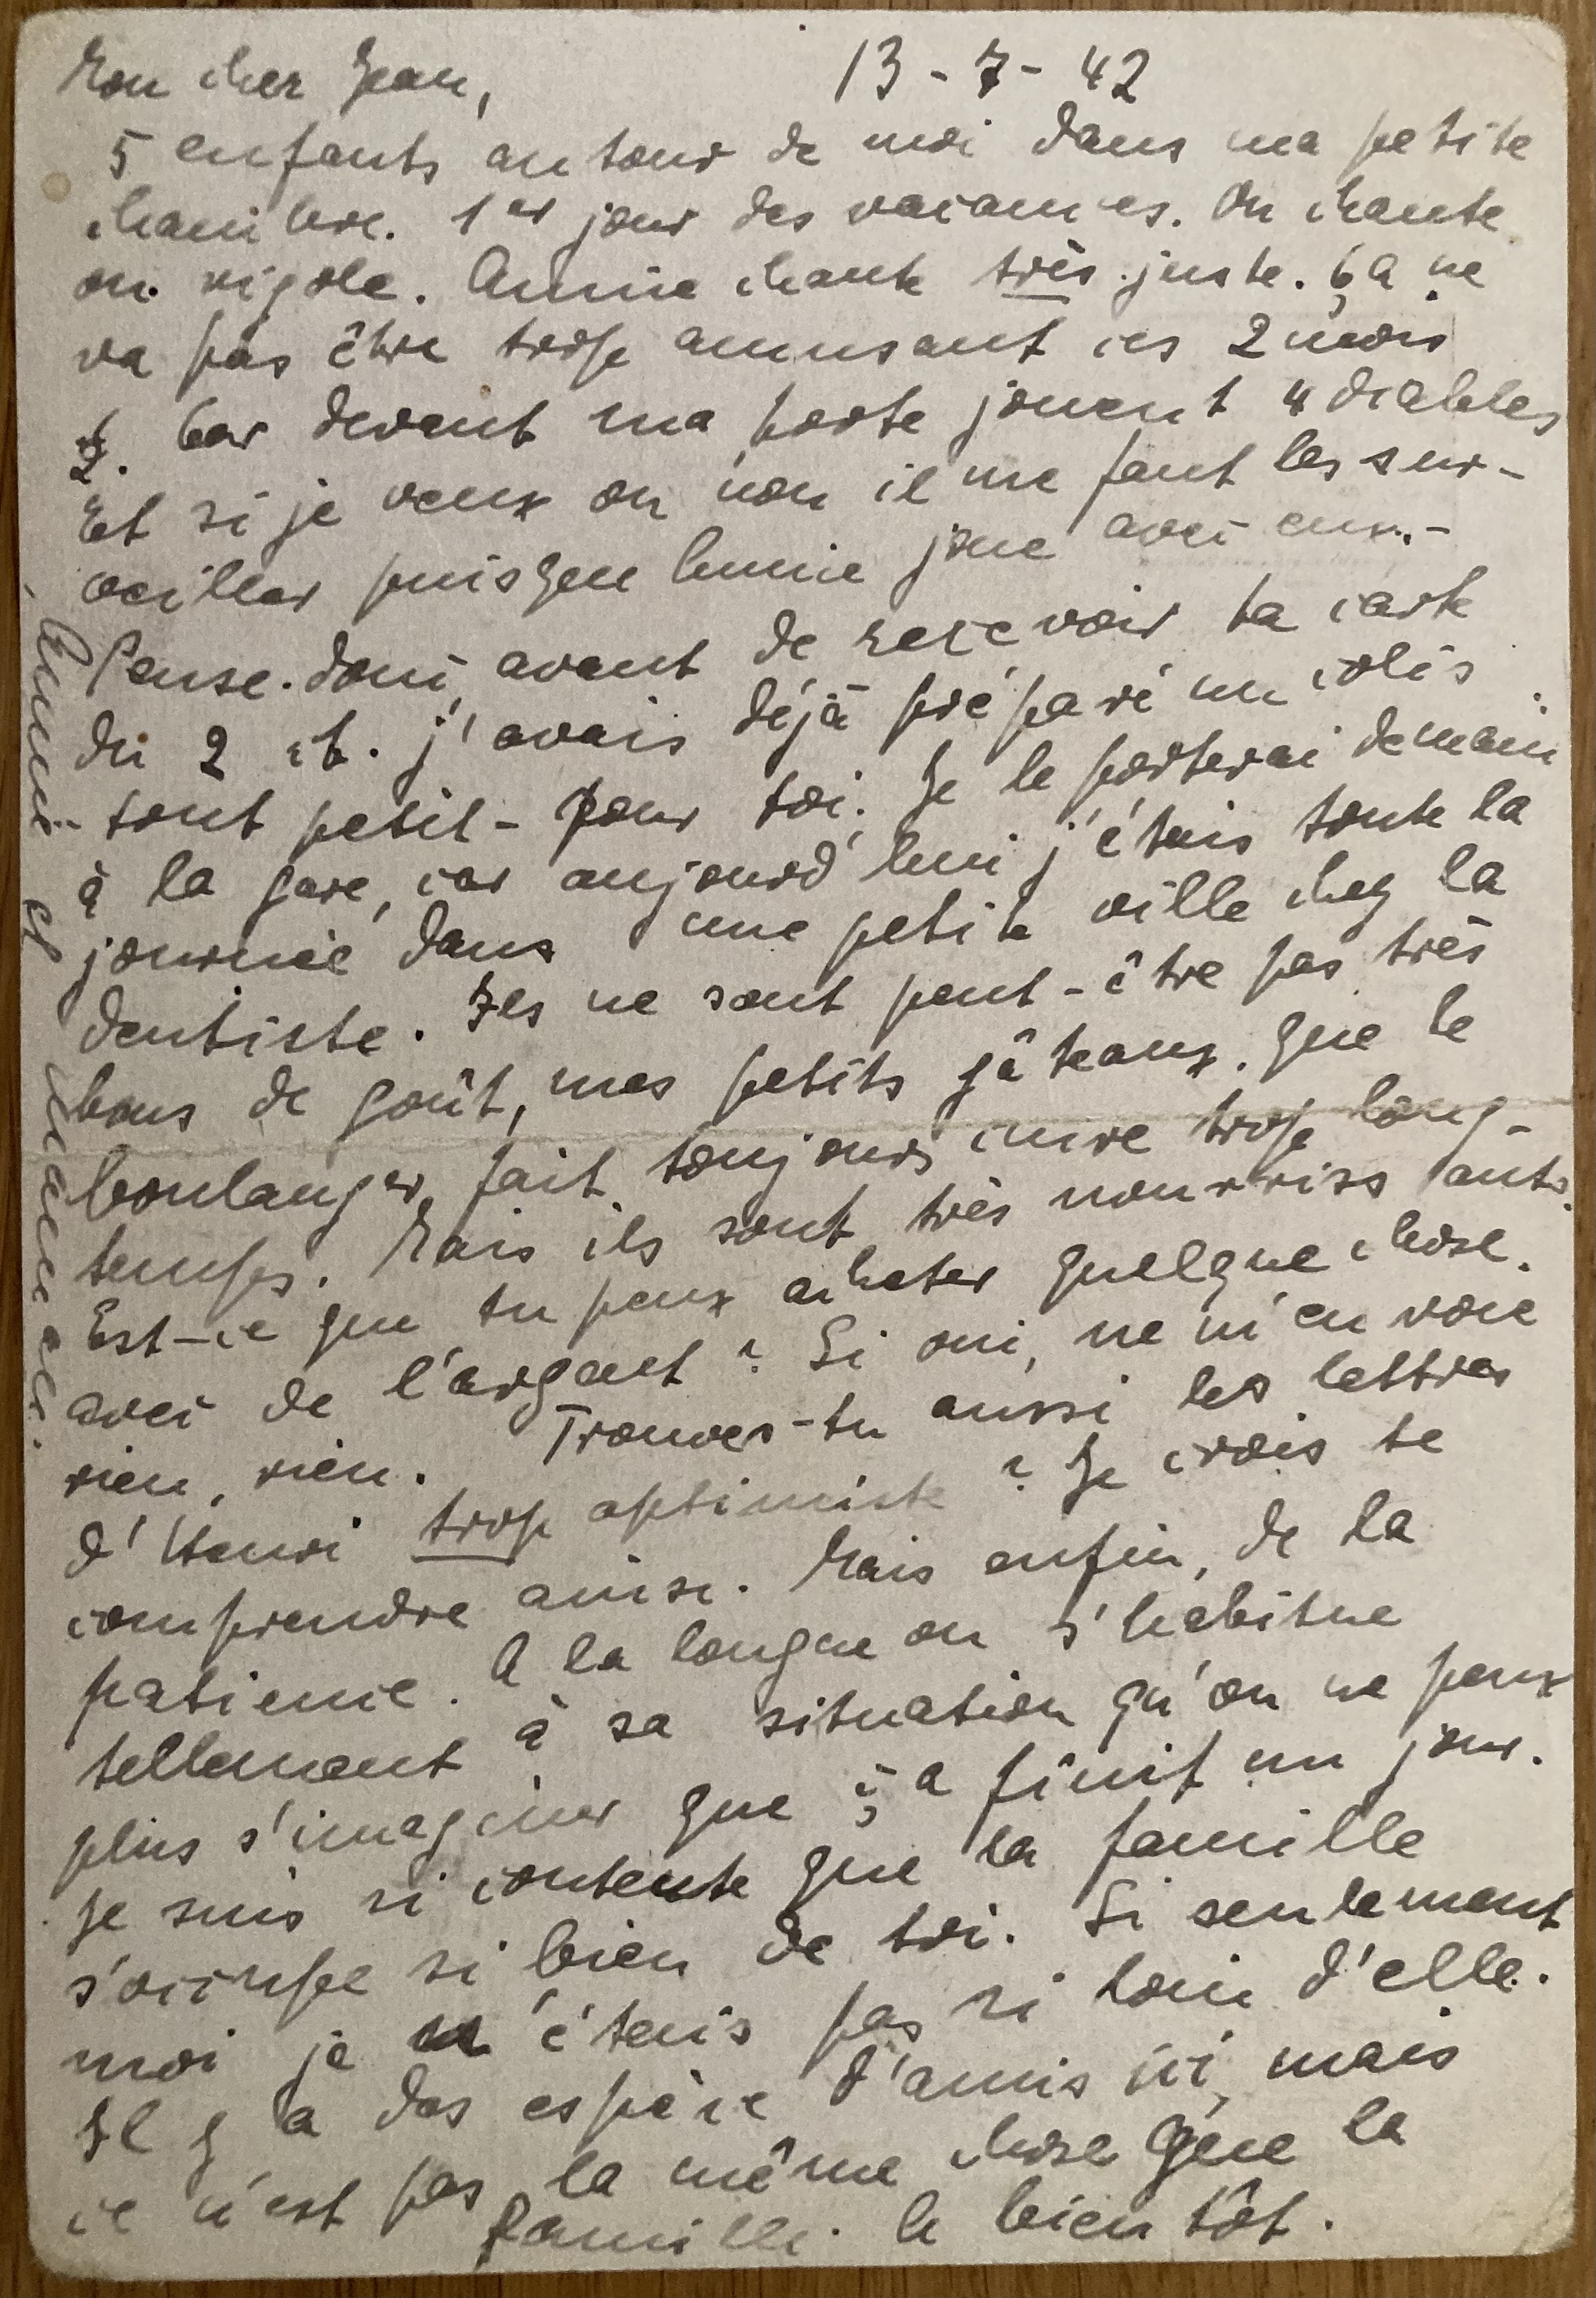 Mon cher Jean, 13-7-42
5 enfants autour de moi dans ma petite
chambre. 1er jour des vacances. On chante
on rigole. Annie chante très juste. Ça ne
va pas être trop amusant ces 2 mois
Car devant ma porte jouent 4 diables
Et si je veux ou non il me faut les sur-
veiller puisque Annie joue avec eux.-
Pense-donc, avant de recevoir ta carte
du 2 ct. j'avais déjà préparé un colis
- tout petit - pour toi. Je le porterai demain
à la gare, car aujourd'hui j'étais toute la
journée dans une petite ville chez la
dentiste. Ils ne sont peut-être pas très
bons de goût, mes petits gâteaux. Que le
boulanger fait toujours cuire trop long-
temps. Mais ils sont très nourrissants.
Est-ce que tu peux acheter quelque chose
avec de l'argent? Si oui, ne m'envoie
rien, rien. Trouves-tu aussi les lettres
d'Henri trop optimiste? Je crois te
comprendre ainsi. Mais enfin, de la
patience. A la longue on s'habitue
tellement à sa situation qu'on ne peux
plus s'imaginer que ça finit un jour.
Je suis si contente que la famille
s'occupe si bien de toi. Si seulement
moi je n'étais pas si loin d'elle.
Il y a des espèce d'amis ici, mais
ce n'est pas la même chose que la
famille. A bientôt.
Annie et